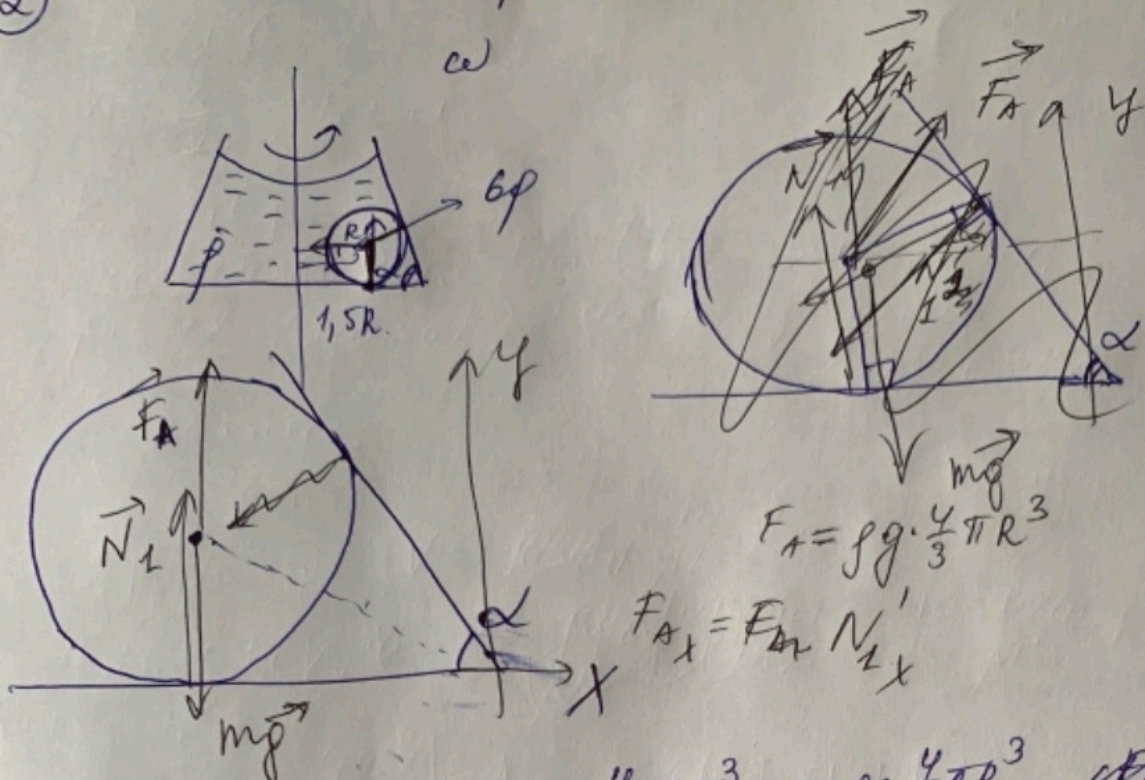 2
ω
6ρ
R
ρ
α
1,5R.
y
F_A
N⃗_1
mg⃗
α
X
F⃗_A
F⃗_A
y
N
α
mg⃗
F_A = ρg · 4/3 πR³
F_Ax = F_A N'_1x
4/3 πR³